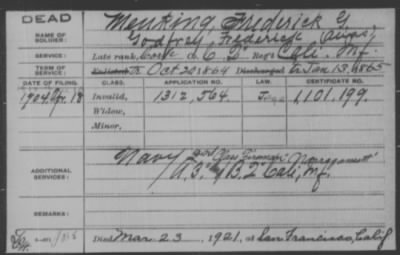 DEAD
NAME OF SOLDIER:
Menking, Frederick G.
Godfrey, Frederick (alias)
SERVICE:
Late rank, Corp Co. "D" Reg't Cal. Inf.
TERM OF SERVICE:
Enlisted Oct 20 1864 Discharged to Jan 13, 1865
DATE OF FILING.
CLASS.
APPLICATION NO.
CERTIFICATE NO.
1904 Apr. 18
Invalid,
1312,564.
1,101,199.
Widow,
Minor,
ADDITIONAL SERVICES:
Navy 2nd Class Fireman "Narragansett"
"A", 3, & "B", 2" Cal. Inf.
REMARKS:
Died Mar 23, 1921, at San Francisco, Calif